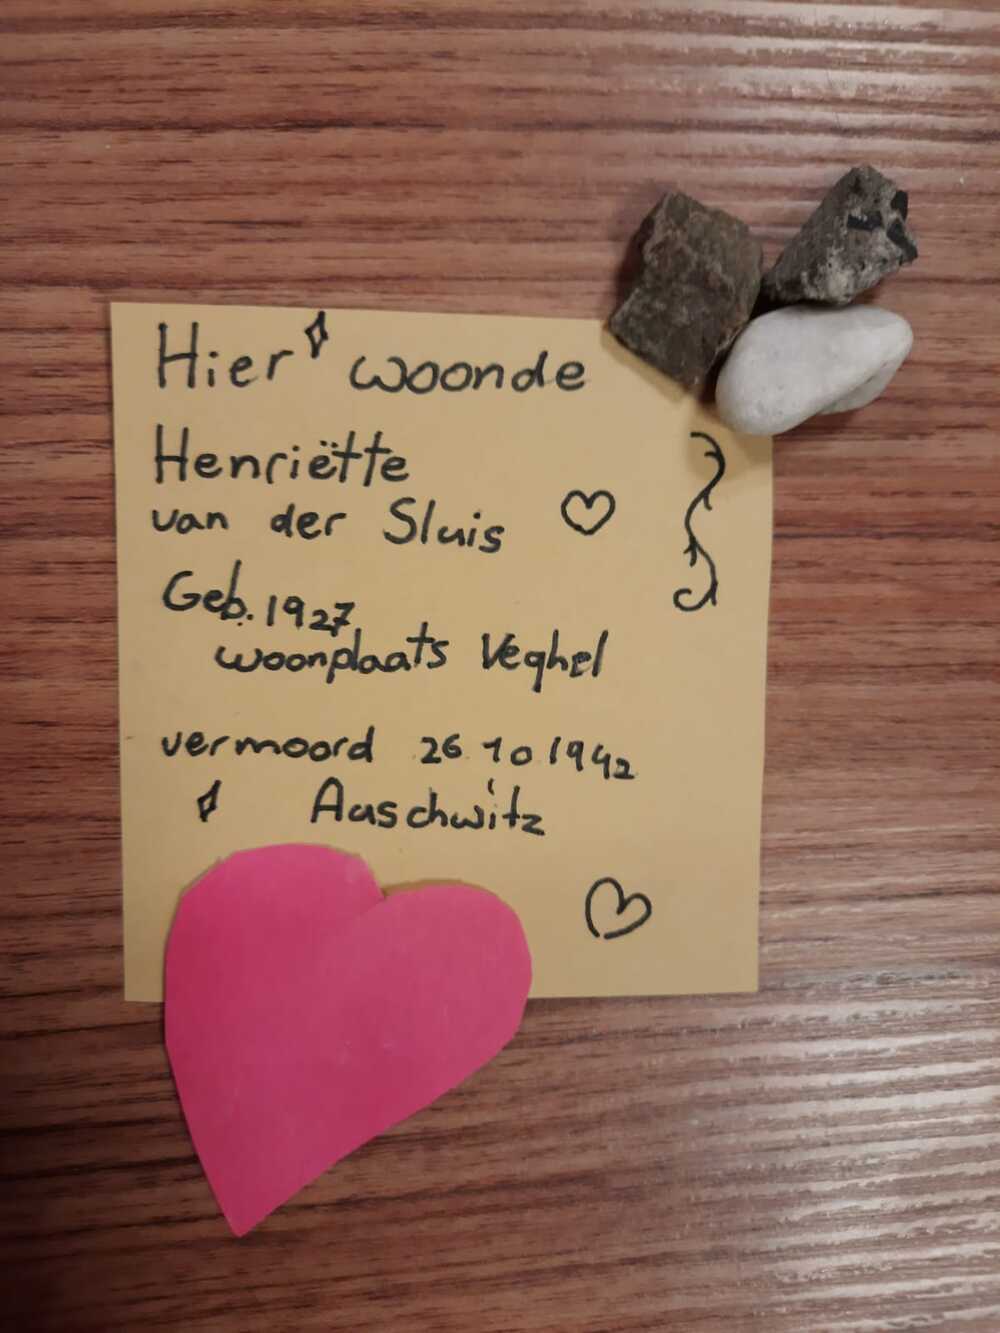 Hier woonde
Henriëtte
van der Sluis
Geb. 1927
woonplaats Veghel
vermoord 26.10.1942
Auschwitz